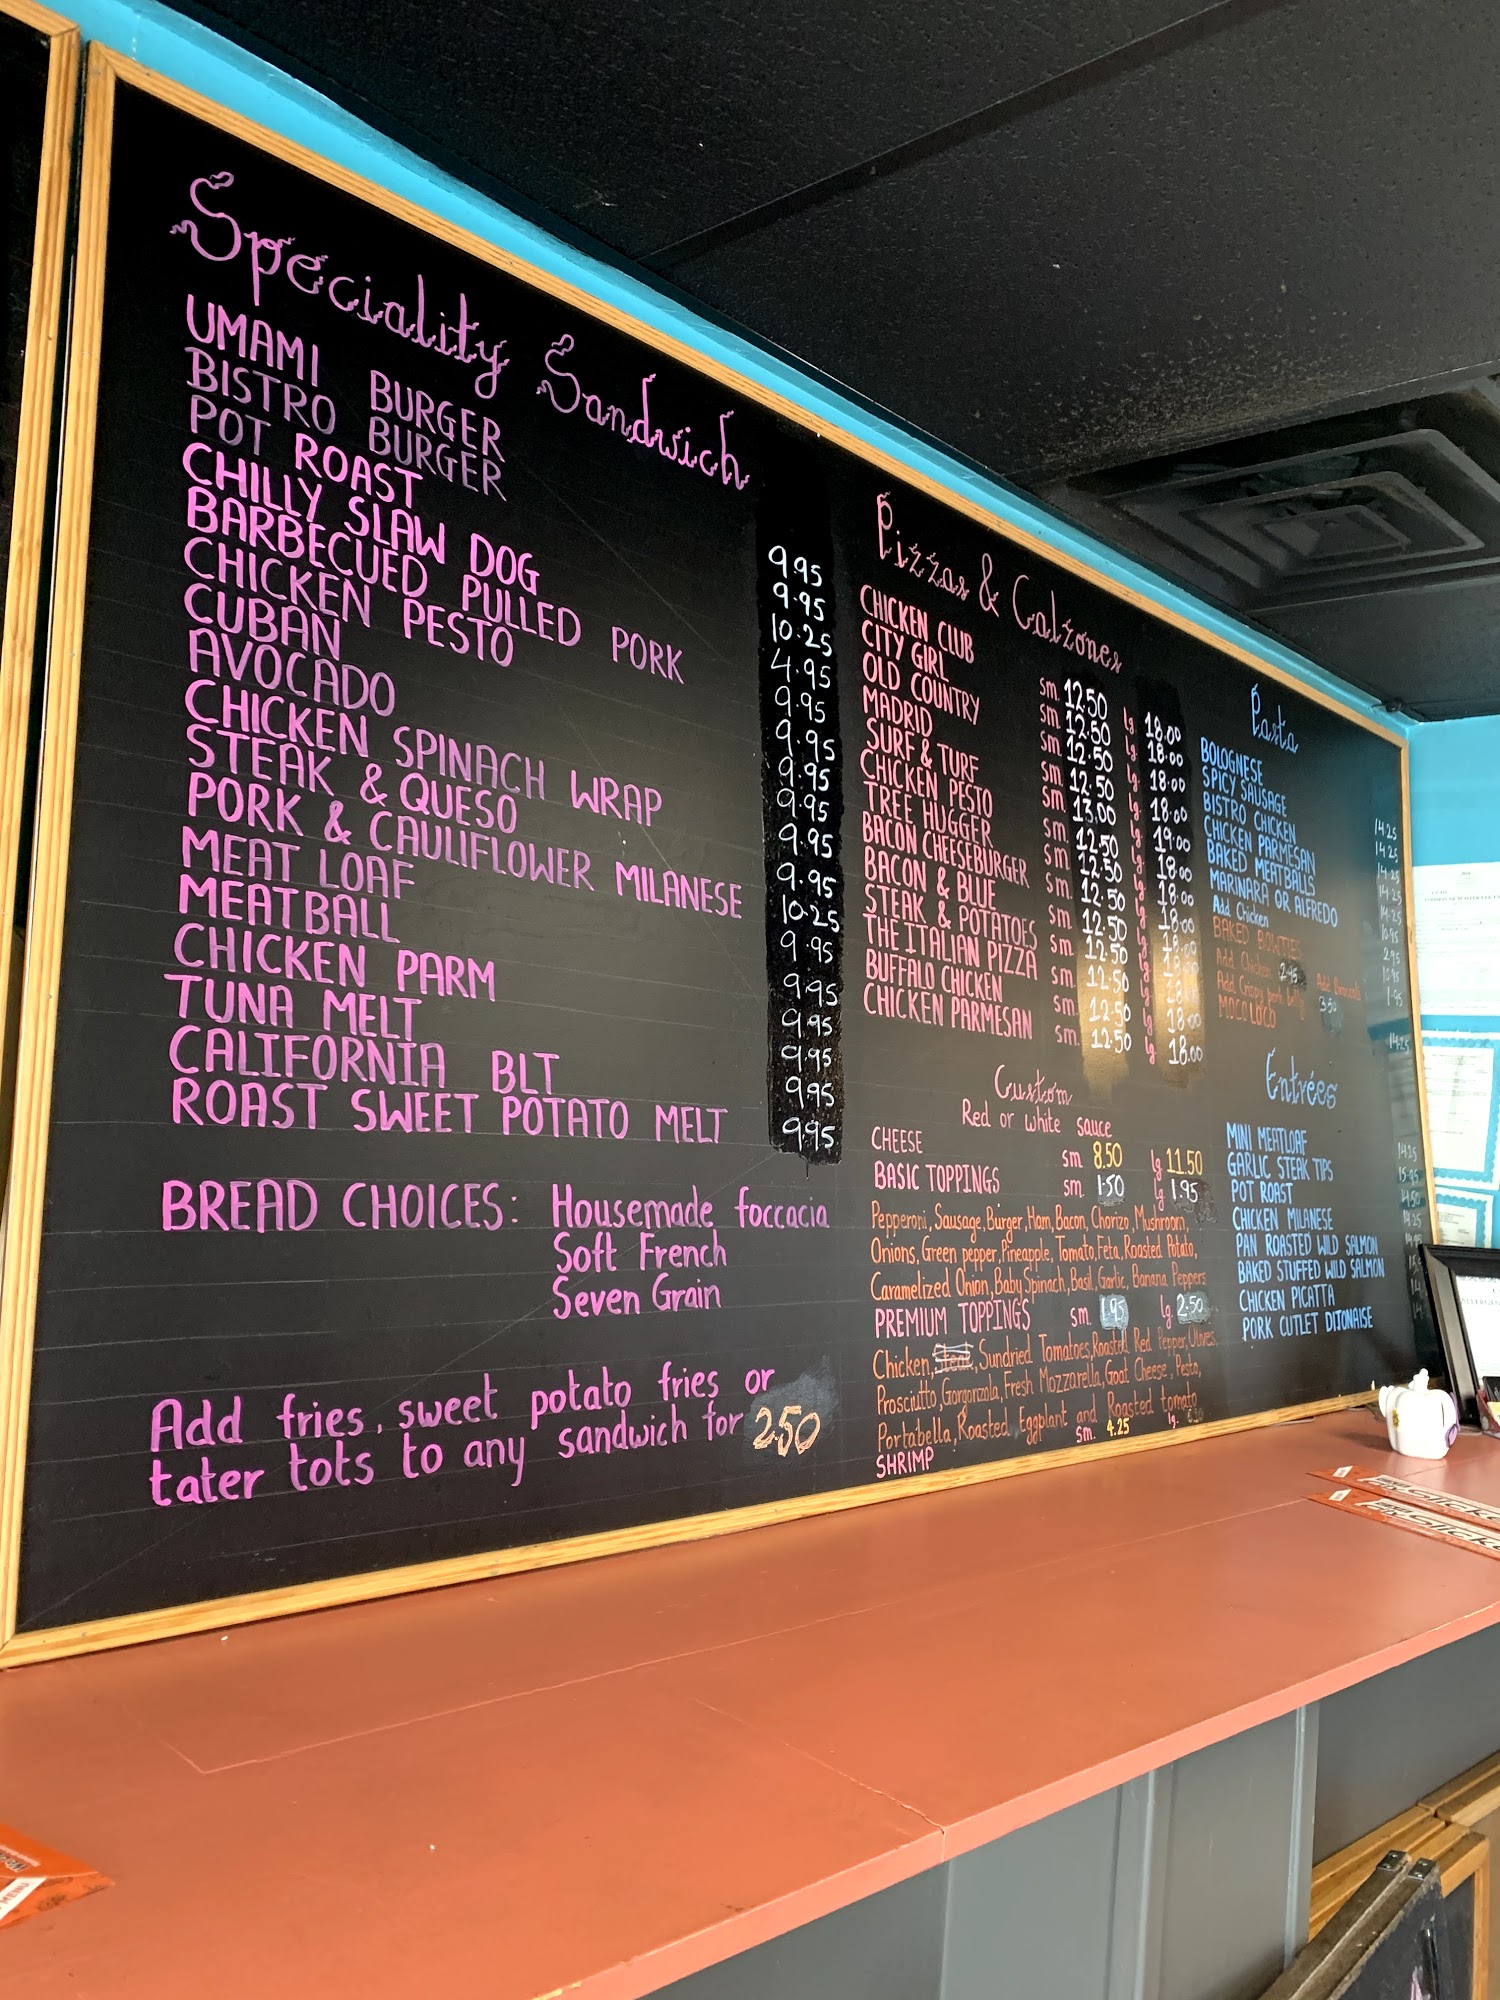 Speciality Sandwich
UMAMI BURGER 9.95
BISTRO BURGER 9.95
POT ROAST 10.25
CHILLY SLAW DOG 4.95
BARBECUED PULLED PORK 9.95
CHICKEN PESTO 9.95
CUBAN 9.95
AVOCADO 9.95
CHICKEN SPINACH WRAP 9.95
STEAK & QUESO 9.95
PORK & CAULIFLOWER MILANESE 10.25
MEAT LOAF 9.95
MEATBALL 9.95
CHICKEN PARM 9.95
TUNA MELT 9.95
CALIFORNIA BLT 9.95
ROAST SWEET POTATO MELT 9.95
BREAD CHOICES: Housemade foccacia
Soft French
Seven Grain
Add fries, sweet potato fries or
tater tots to any sandwich for 2.50
Pizzas & Calzones
CHICKEN CLUB sm. 12.50 lg 18.00
CITY GIRL sm. 12.50 lg. 18.00
OLD COUNTRY sm. 12.50 lg. 18.00
MADRID sm. 12.50 lg. 18.00
SURF & TURF sm. 13.00 lg. 19.00
CHICKEN PESTO sm. 12.50 lg. 18.00
TREE HUGGER sm. 12.50 lg. 18.00
BACON CHEESEBURGER sm. 12.50 lg. 18.00
BACON & BLUE sm. 12.50 lg. 18.00
STEAK & POTATOES sm. 12.50 lg. 18.00
THE ITALIAN PIZZA sm. 12.50 lg. 18.00
BUFFALO CHICKEN sm. 12.50 lg. 18.00
CHICKEN PARMESAN sm. 12.50 lg. 18.00
Custom
Red or white sauce
CHEESE sm. 8.50 lg 11.50
BASIC TOPPINGS sm. 1.50 lg. 1.95
Pepperoni, Sausage, Burger, Ham, Bacon, Chorizo, Mushroom,
Onions, Green pepper, Pineapple, Tomato, Feta, Roasted Potato,
Caramelized Onion, Baby Spinach, Basil, Garlic, Banana Peppers
PREMIUM TOPPINGS sm. 1.95 lg. 2.50
Chicken, Steak, Sundried Tomatoes, Roasted Red Pepper, Olives,
Prosciutto, Gorgonzola, Fresh Mozzarella, Goat Cheese, Pesto,
Portabella, Roasted Eggplant and Roasted tomato
SHRIMP sm. 4.25 lg.
Pasta
BOLOGNESE 14.25
SPICY SAUSAGE 14.25
BISTRO CHICKEN 14.25
CHICKEN PARMESAN 14.25
BAKED MEATBALLS 14.25
MARINARA OR ALFREDO 10.95
Add Chicken 2.95
BAKED BOWTIES 10.95
Add Chicken 2.95 Add Broccoli 1.95
Add Crispy pork belly 3.50
MOCO LOCO 14.25
Entrées
MINI MEATLOAF 14.25
GARLIC STEAK TIPS 15.95
POT ROAST 14.50
CHICKEN MILANESE 14.25
PAN ROASTED WILD SALMON
BAKED STUFFED WILD SALMON
CHICKEN PICATTA
PORK CUTLET DIJONAISE
MENU